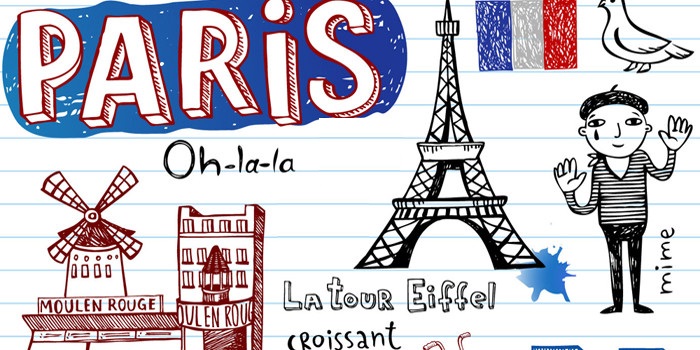 PARiS
Oh-la-la
MOULEN ROUGE
OULEN ROUG
LA toUR Eiffel
CRoissant
mime